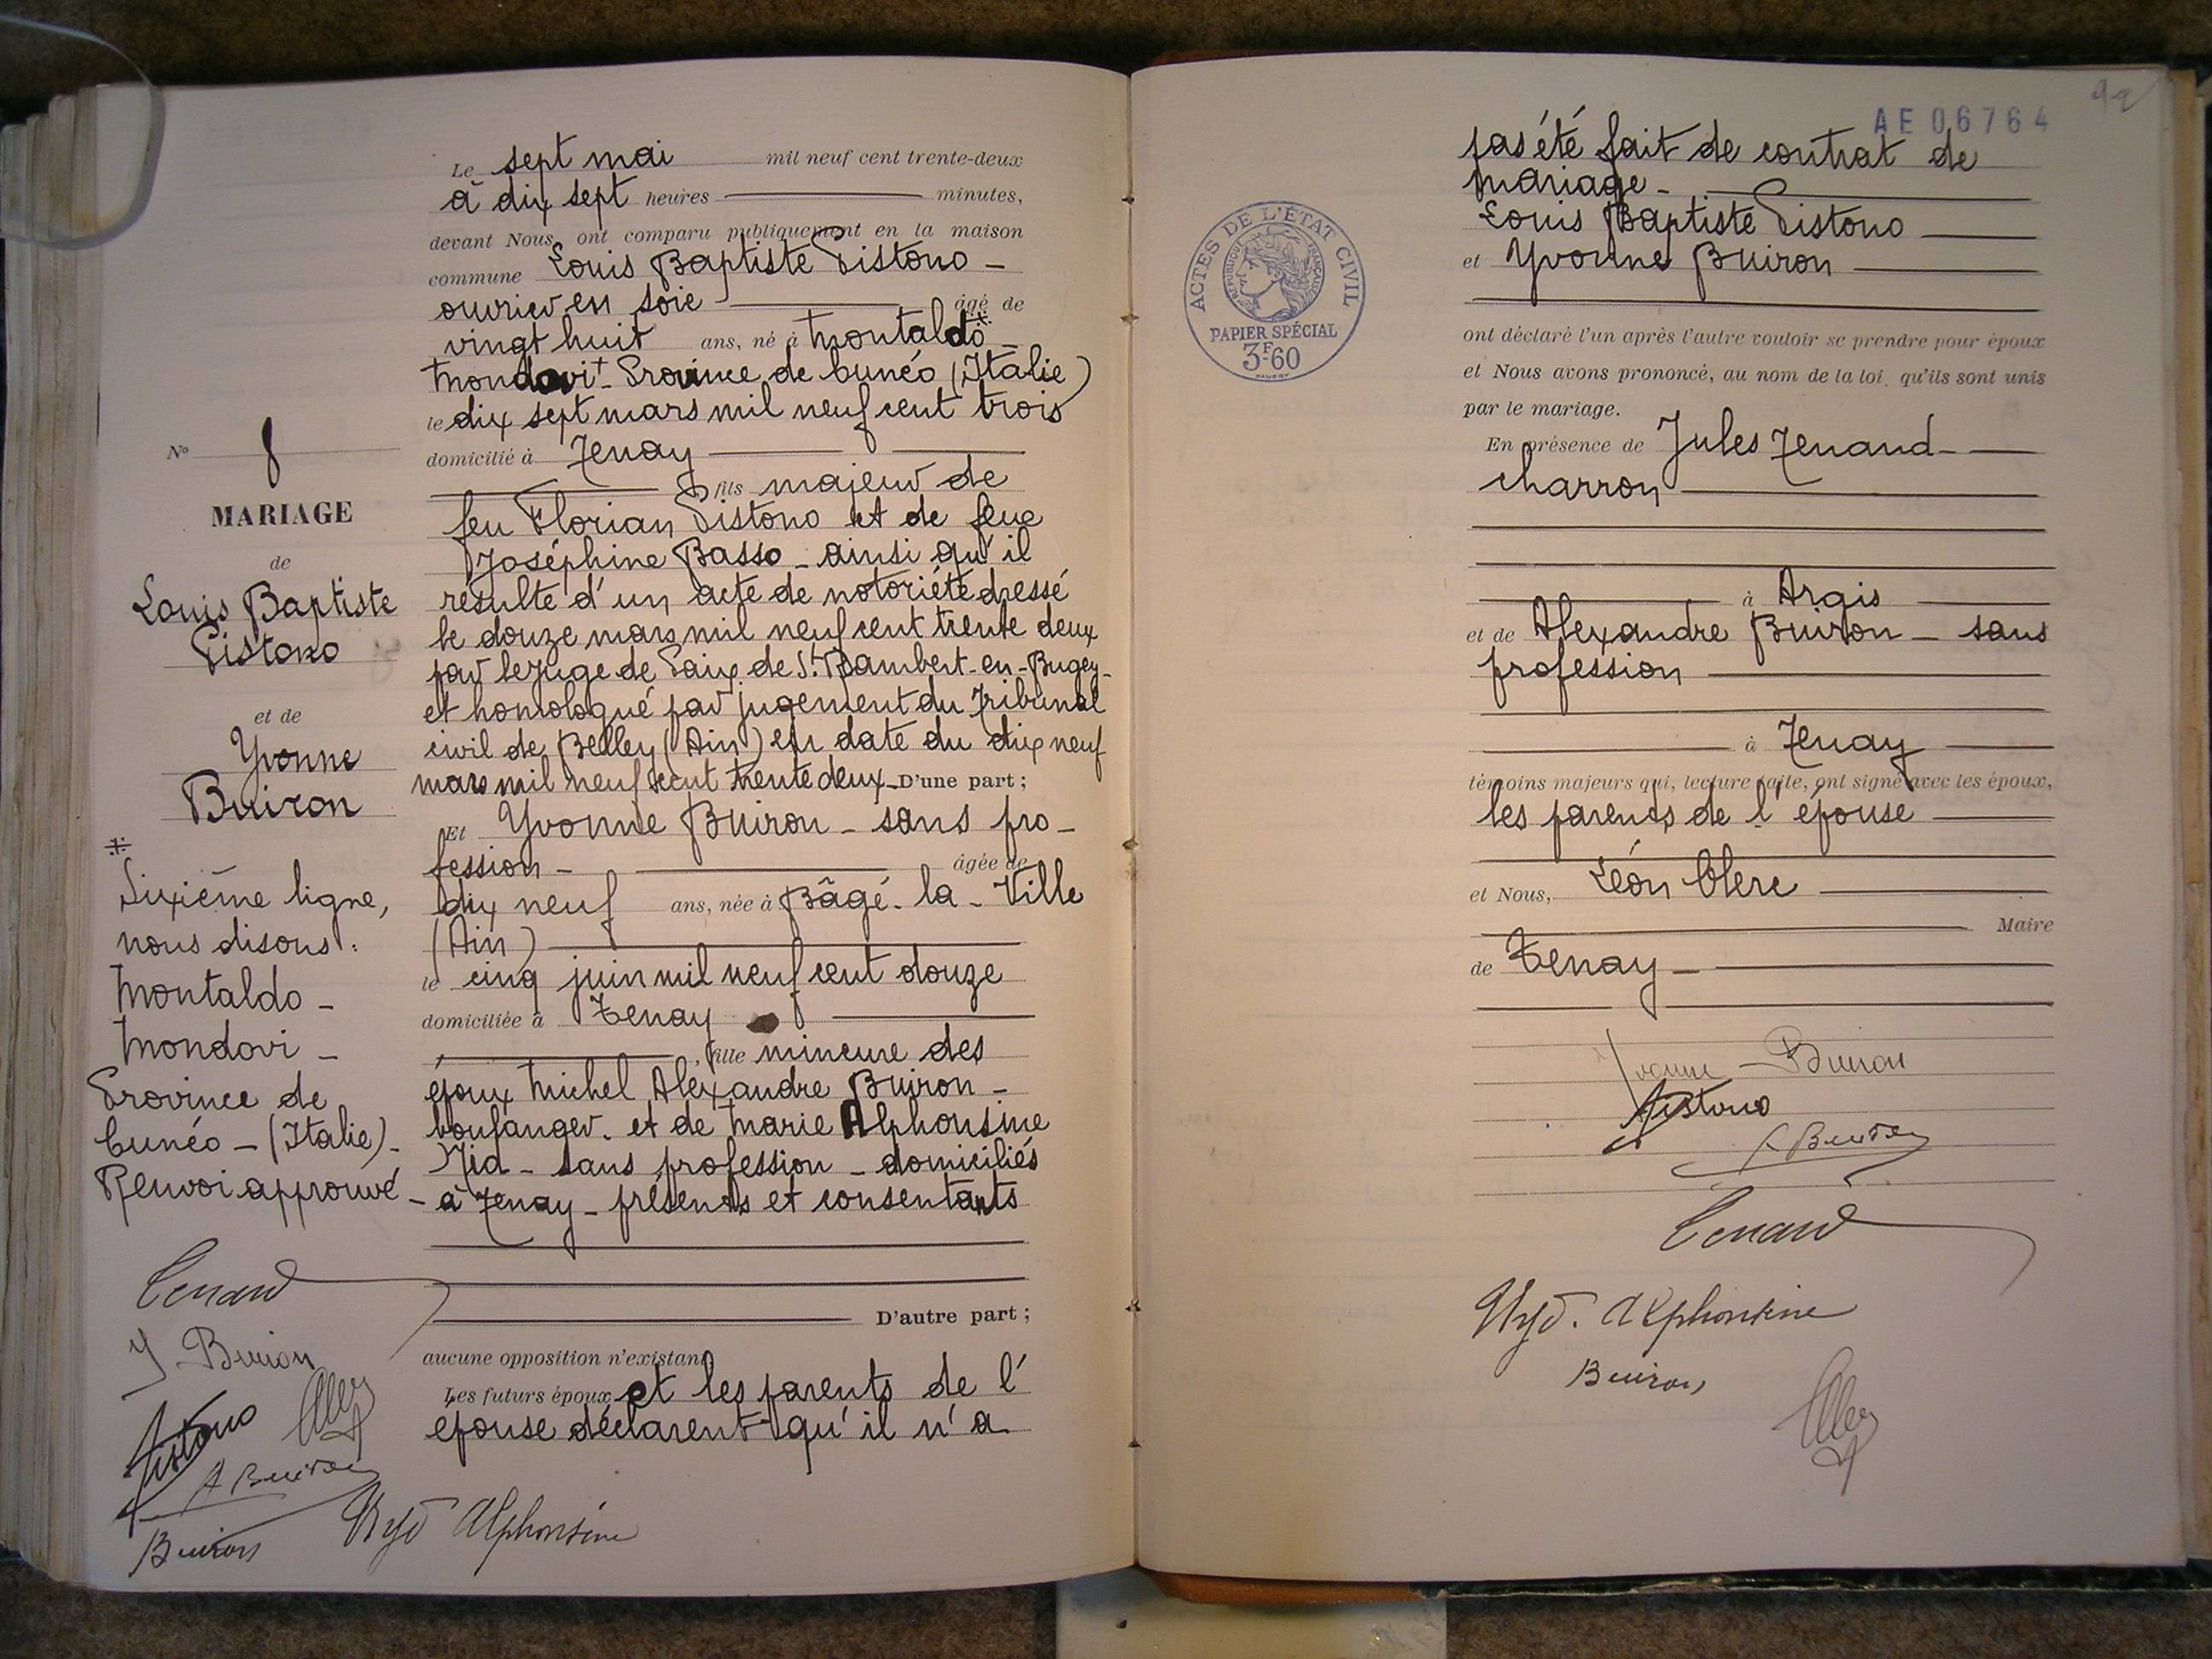 N° 8
MARIAGE
de
Louis Baptiste
Pistono
et de
Yvonne
Buiron
Sixième ligne,
nous disons :
Montaldo -
Mondovi -
Province de
Cunéo - (Italie) -
Renvoi approuvé -
Tenand
Y Buiron
Pistono
A Buiron
Buiron
Alphonsine
Le sept mai mil neuf cent trente-deux
à dix sept heures minutes,
devant Nous, ont comparu publiquement en la maison
commune Louis Baptiste Pistono -
ouvrier en soie âgé de
vingt huit ans, né à Montaldo
Mondovi - Province de Cunéo (Italie)
le dix sept mars mil neuf cent trois
domicilié à Tenay
fils majeur de
feu Florian Pistono et de feue
Joséphine Basso - ainsi qu'il
résulte d'un acte de notoriété dressé
le douze mars mil neuf cent trente deux
par le Juge de Paix de St. Rambert-en-Bugey -
et homologué par jugement du Tribunal
civil de Belley (Ain) en date du dix neuf
mars mil neuf cent trente deux - D'une part ;
Et Yvonne Buiron - sans pro-
fession - âgée de
dix neuf ans, née à Bâgé-la-Ville
(Ain)
le cinq juin mil neuf cent douze
domiciliée à Tenay
, fille mineure des
époux Michel Alexandre Buiron -
boulanger. et de Marie Alphonsine
- sans profession - domiciliés
à Tenay - présents et consentants
D'autre part ;
aucune opposition n'existant
Les futurs époux et les parents de l'
épouse déclarent qu'il n'a
AE 06764
pas été fait de contrat de
mariage -
Louis Baptiste Pistono
et Yvonne Buiron
ACTES DE L'ÉTAT CIVIL
RÉPUBLIQUE FRANÇAISE
PAPIER SPÉCIAL
3F.60
ont déclaré l'un après l'autre vouloir se prendre pour époux
et Nous avons prononcé, au nom de la loi, qu'ils sont unis
par le mariage.
En présence de Jules Tenand -
charron
à Argis
et de Alexandre Buiron - sans
profession
à Tenay
témoins majeurs qui, lecture faite, ont signé avec les époux,
les parents de l'épouse
et Nous, Léon Clerc
Maire
de Tenay -
Yvonne - Buiron
Pistono
A Buiron
Tenand
Alphonsine
Buiron